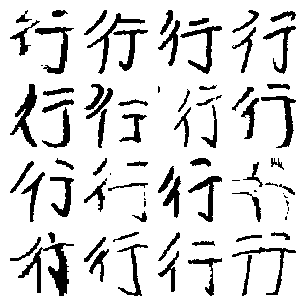 行行行行
行行行行
行行行
行行行行